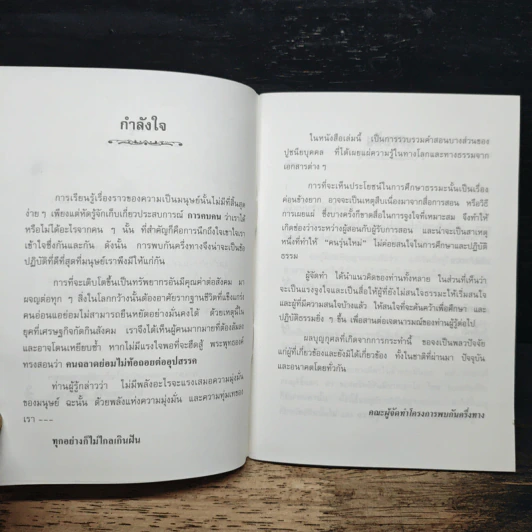 กำลังใจ
การเรียนรู้เรื่องราวของความเป็นมนุษย์นั้นไม่มีที่สิ้นสุด
ง่าย ๆ เพียงแต่หัดรู้จักเก็บเกี่ยวประสบการณ์ การคบคน ว่าเราได้
หรือไม่ได้อะไรจากคน ๆ นั้น ที่สำคัญก็คือการนึกถึงใจเขาใจเรา
เข้าใจซึ่งกันและกัน ดังนั้น การพบกันครึ่งทางจึงน่าจะเป็นข้อ
ปฏิบัติที่ดีที่สุดที่มนุษย์เราพึงมีให้แก่กัน
การที่จะเติบโตขึ้นเป็นทรัพยากรอันมีคุณค่าต่อสังคม มา
ผจญต่อทุก ๆ สิ่งในโลกกว้างนั้นต้องอาศัยรากฐานชีวิตที่แข็งแกร่ง
คนอ่อนแอย่อมไม่สามารถยืนหยัดอย่างมั่นคงได้ ด้วยเหตุนี้ใน
ยุคที่เศรษฐกิจกัดกินสังคม เราจึงได้เห็นผู้คนมากมายที่ต้องล้มลง
และอาจโดนเหยียบซ้ำ หากไม่มีแรงพอที่จะฮึดสู้ พระพุทธองค์
ทรงสอนว่า คนฉลาดย่อมไม่ท้อถอยต่ออุปสรรค
ท่านผู้รู้กล่าวว่า ไม่มีพลังอะไรจะแรงเสมอความมุ่งมั่น
ของมนุษย์ ฉะนั้น ด้วยพลังแห่งความมุ่งมั่น และความทุ่มเทของ
เรา ---
ทุกอย่างก็ไม่ไกลเกินฝัน
ในหนังสือเล่มนี้ เป็นการรวบรวมคำสอนบางส่วนของ
ปูชนียบุคคล ที่ได้เผยแผ่ความรู้ในทางโลกและทางธรรมจาก
เอกสารต่าง ๆ
การที่จะเห็นประโยชน์ในการศึกษาธรรมะนั้นเป็นเรื่อง
ค่อนข้างยาก อาจจะเป็นเหตุสืบเนื่องมาจากสื่อการสอน หรือวิธี
การเผยแผ่ ซึ่งบางครั้งก็ขาดสื่อในการจูงใจที่เหมาะสม จึงทำให้
เกิดช่องว่างระหว่างผู้สอนกับผู้รับการสอน และน่าจะเป็นสาเหตุ
หนึ่งที่ทำให้ "คนรุ่นใหม่" ไม่ค่อยสนใจในการศึกษาและปฏิบัติ
ธรรม
ผู้จัดทำ ได้นำแนวคิดของท่านทั้งหลาย ในส่วนที่เห็นว่า
จะเป็นแรงจูงใจและเป็นสื่อให้ผู้ที่ยังไม่สนใจธรรมะให้เริ่มสนใจ
และผู้ที่มีความสนใจบ้างแล้ว ให้สนใจที่จะค้นคว้าเพื่อศึกษา และ
ปฏิบัติธรรมยิ่ง ๆ ขึ้น เพื่อสานต่อเจตนารมณ์ของท่านผู้รู้ต่อไป
ผลบุญกุศลที่เกิดจากการกระทำนี้ ขอจงเป็นพลวปัจจัย
แก่ผู้ที่เกี่ยวข้องและยังมิได้เกี่ยวข้อง ทั้งในชาติที่ผ่านมา ปัจจุบัน
และอนาคตโดยทั่วกัน
คณะผู้จัดทำโครงการพบกันครึ่งทาง